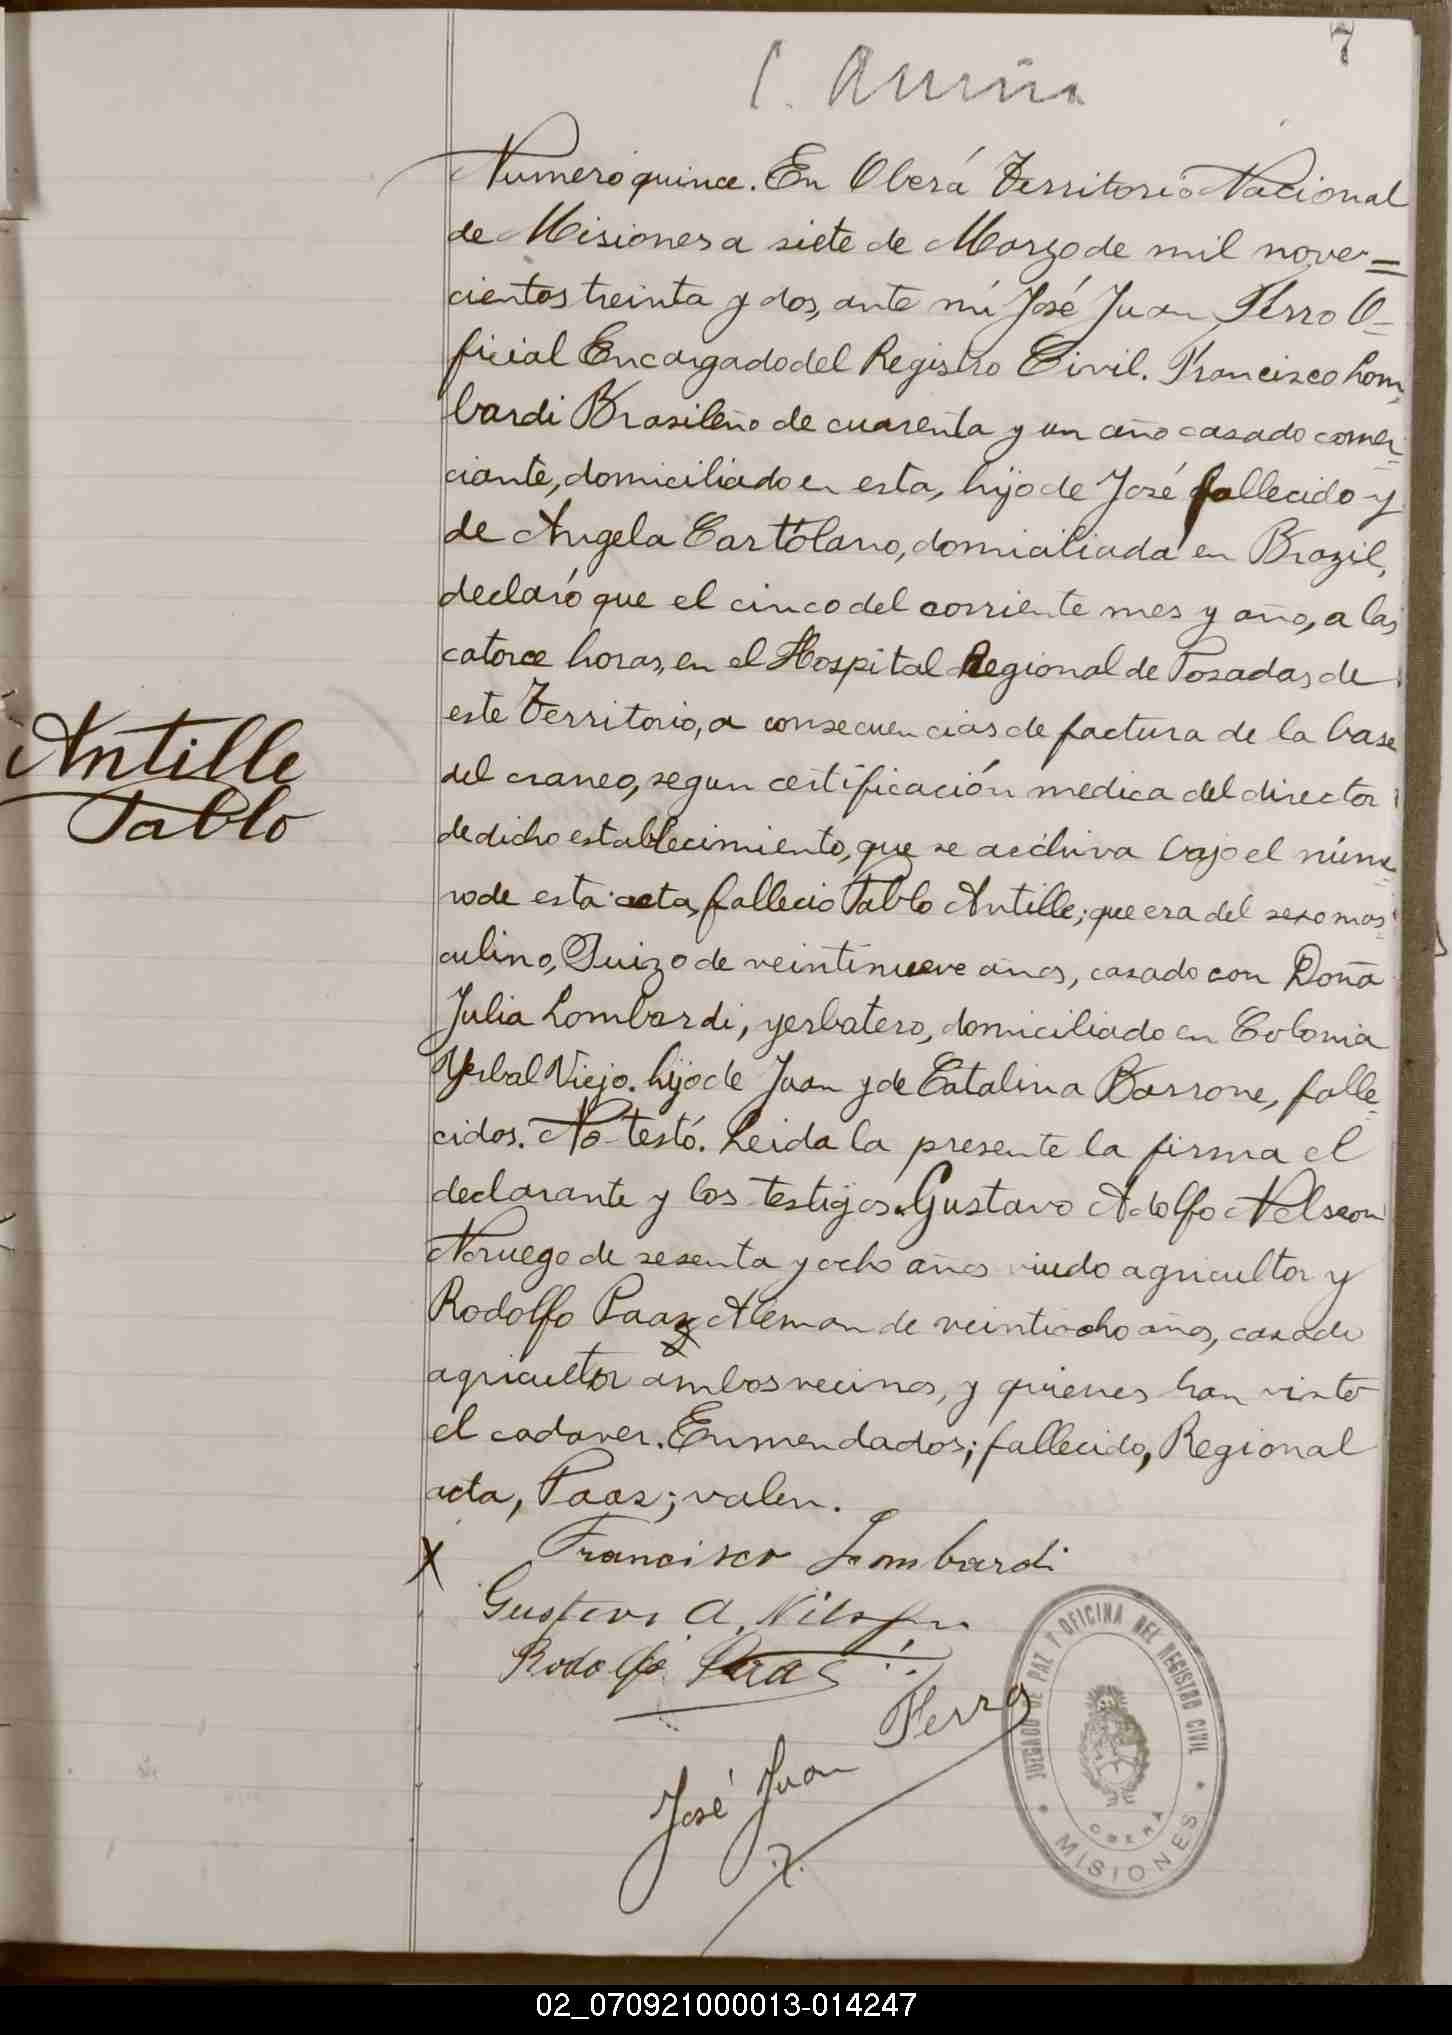 7
Numero quince. En Oberá Territorio Nacional
de Misiones a siete de Marzo de mil nove=
cientos treinta y dos, ante mí José Juan Ferro O-
ficial Encargado del Registro Civil. Francisco Lom-
bardi Brasileño de cuarenta y un año casado comer-
ciante, domiciliado en esta, hijo de José fallecido y
de Angela Cartólano, domiciliada en Brazil,
declaró que el cinco del corriente mes y año, a las
catorce horas, en el Hospital Regional de Posadas, de
este Territorio, a consecuencias de factura de la base
del craneo, segun certificación medica del director
de dicho establecimiento, que se archiva bajo el núme-
ro de esta acta, fallecio Pablo Antille; que era del sexo mas-
culino, Suizo de veintinueve años, casado con Doña
Julia Lombardi, yerbatero, domiciliado en Colonia
Yerbal Viejo. hijo de Juan y de Catalina Barrone, falle-
cidos. No testó. Leida la presente la firma el
declarante y los testigos. Gustavo Adolfo Nelson
Noruego de sesenta y ocho años viudo agricultor y
Rodolfo Paaz Aleman de veintiocho años, casado
agricultor ambos vecinos, y quienes han visto
el cadaver. Enmendados; fallecido, Regional
acta, Paaz; valen.
Antille
Pablo
X Francisco Lombardi
Gustavo A. Nilsson
Rodolfo Paas
José Juan Ferro
JUZGADO DE PAZ Y OFICINA DEL REGISTRO CIVIL
OBERA
MISIONES
02_070921000013-014247